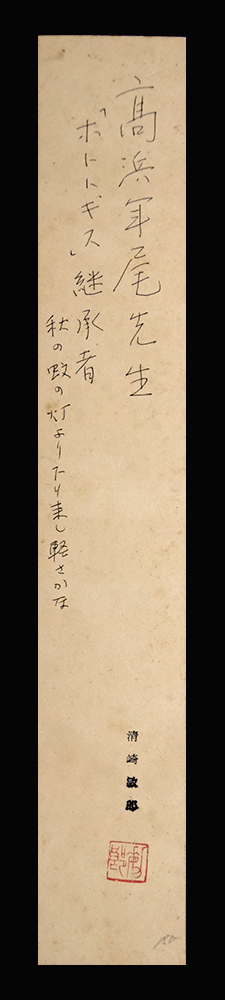 高浜年尾先生
「ホトトギス」継承者
秋の蚊の灯より下り来し軽さかな
清崎敏郎